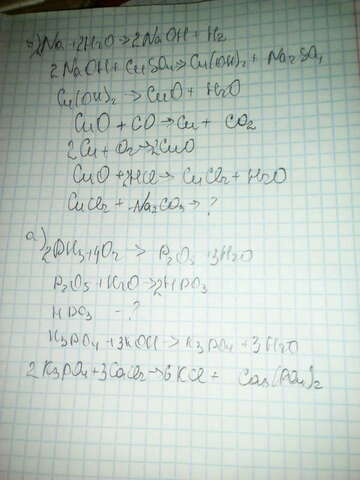 2) 2Na + 2H2O → 2NaOH + H2
2NaOH + CuSO4 → Cu(OH)2 + Na2SO4
Cu(OH)2 → CuO + H2O
CuO + CO → Cu + CO2
2Cu + O2 → 2CuO
CuO + 2HCl → CuCl2 + H2O
CuCl2 + Na2CO3 → ?
а) 2PH3 + 4O2 → P2O5 + 3H2O
P2O5 + H2O → 2HPO3
HPO3 - ?
H3PO4 + 3KOH → K3PO4 + 3H2O
2K3PO4 + 3CaCl2 → 6KCl + Ca3(PO4)2